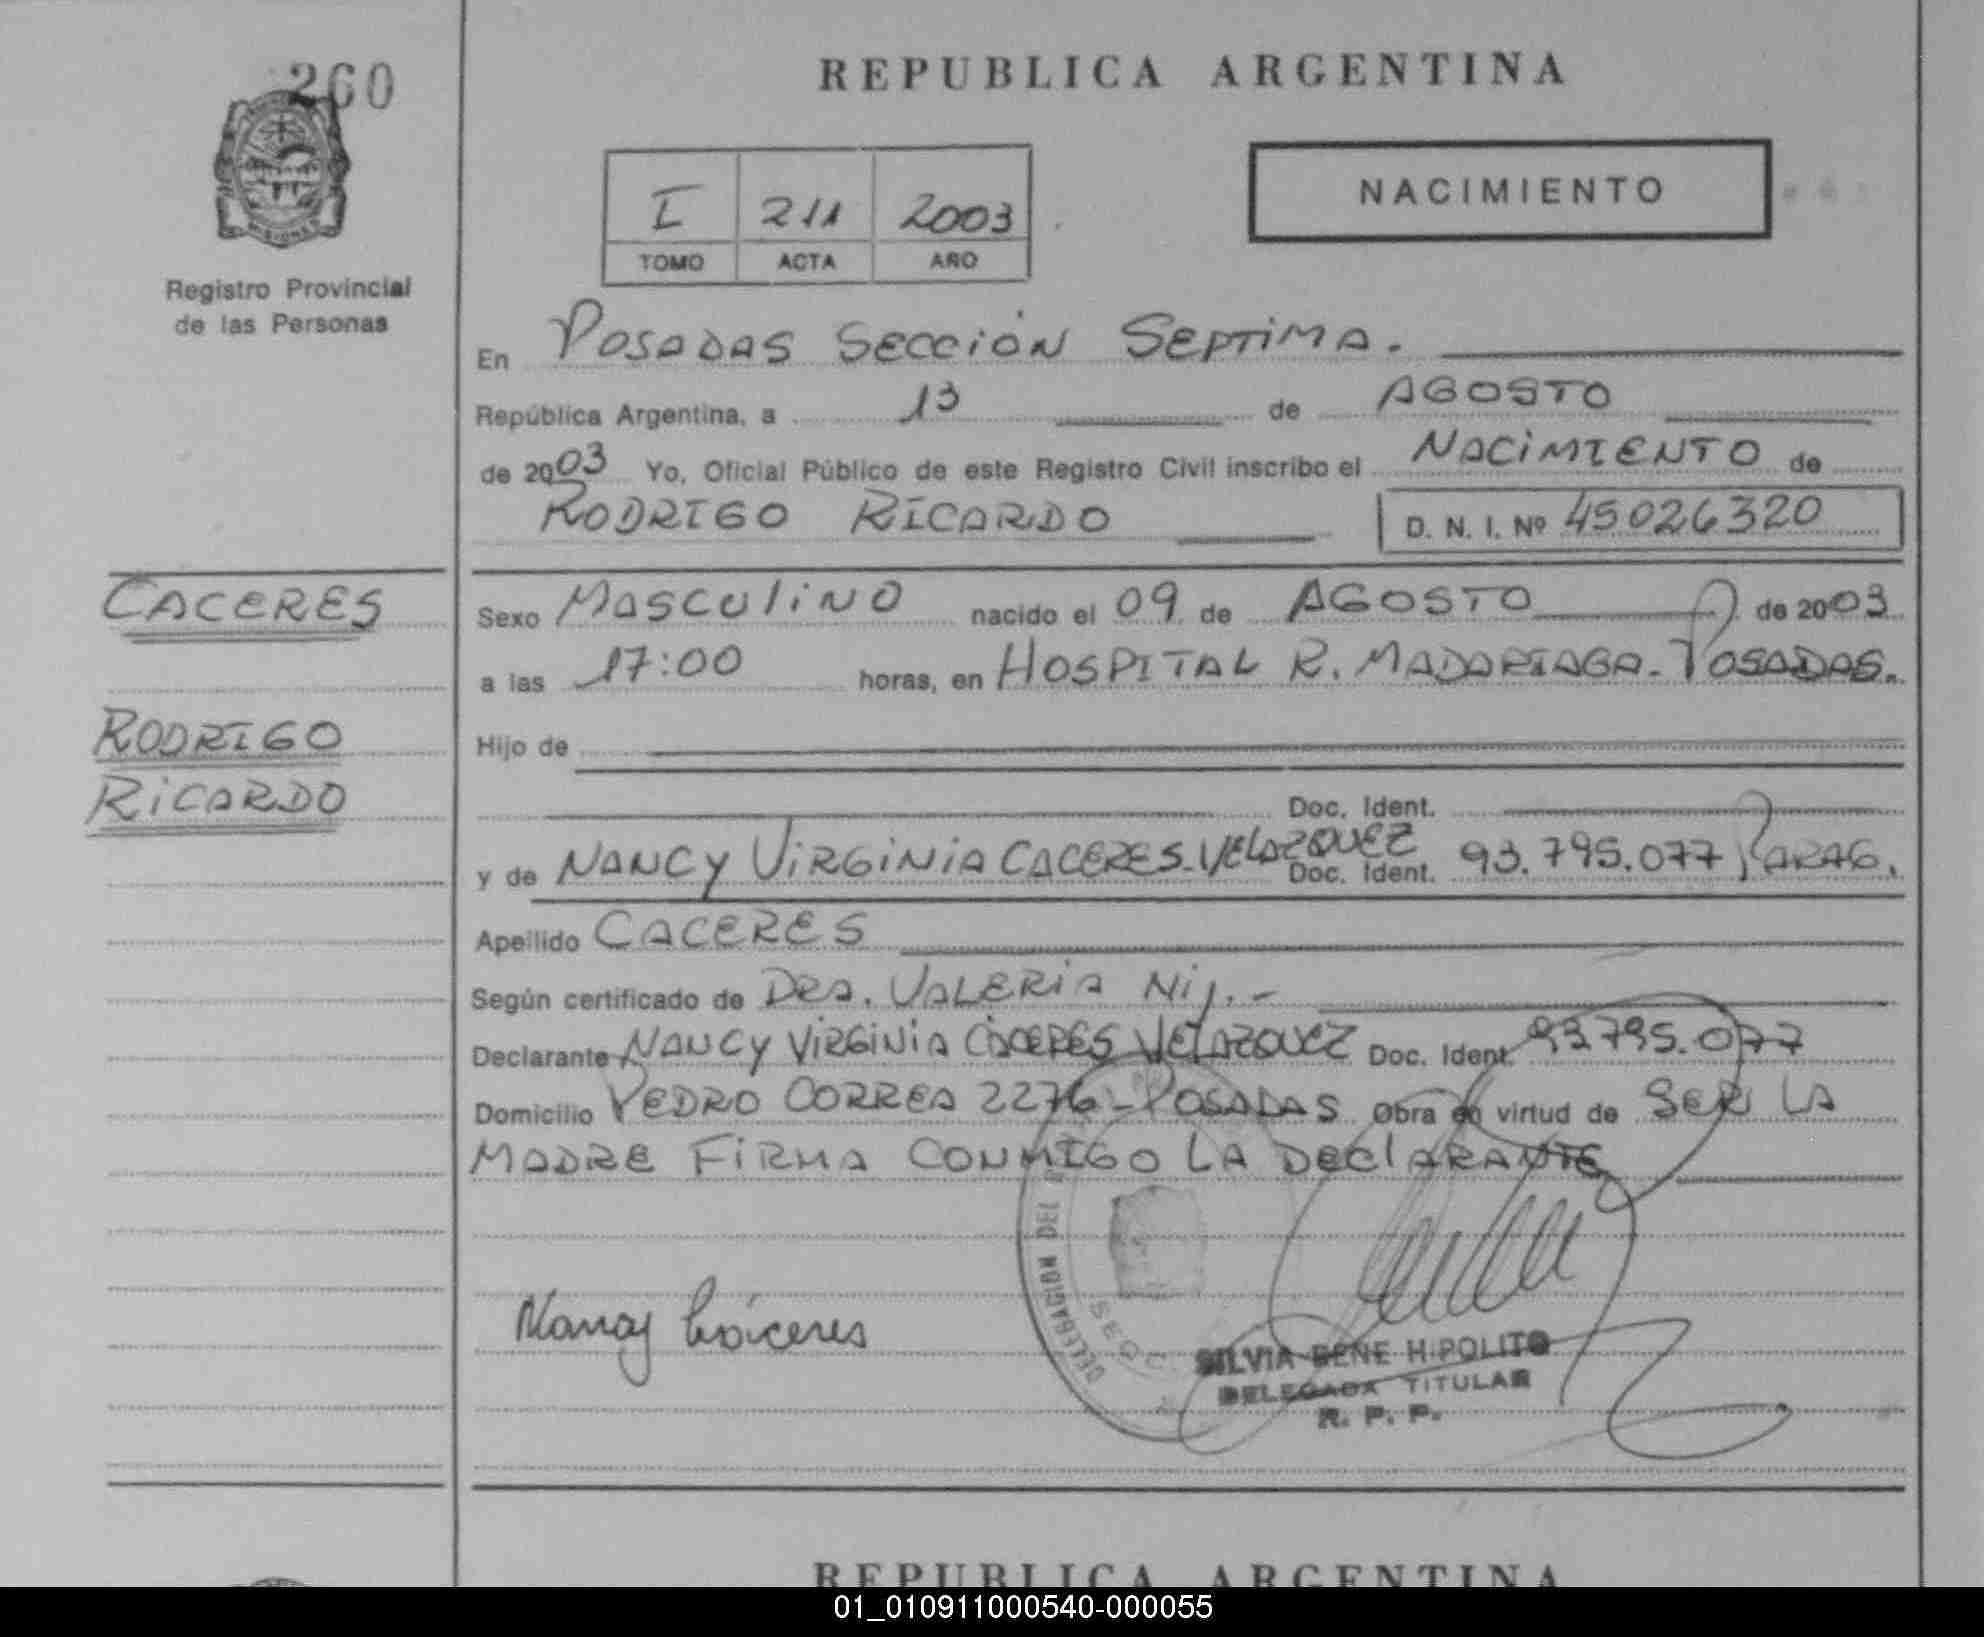 260
REPUBLICA ARGENTINA
NACIMIENTO
I 211 2003
TOMO ACTA AÑO
Registro Provincial
de las Personas
En POSADAS SECCIÓN SEPTIMA.
República Argentina, a 13 de AGOSTO
de 2003 Yo, Oficial Público de este Registro Civil inscribo el NACIMIENTO de
RODRIGO RICARDO D. N. I. Nº 45026320
CACERES
RODRIGO
RICARDO
Sexo MASCULINO nacido el 09 de AGOSTO de 2003
a las 17:00 horas, en HOSPITAL R. MADARIAGA - POSADAS.
Hijo de
Doc. Ident.
y de NANCY VIRGINIA CACERES - VELAZQUEZ Doc. Ident. 93.795.077 PARAG.
Apellido CACERES
Según certificado de DRA. VALERIA NIJ. -
Declarante NANCY VIRGINIA CACERES VELAZQUEZ Doc. Ident. 93795.077
Domicilio PEDRO CORREA 2276 - POSADAS Obra en virtud de SER LA
MADRE FIRMA CONMIGO LA DECLARANTE
DELEGACION DEL
SECC
Nancy Cáceres
SILVIA BENE HIPOLITO
DELEGADA TITULAR
R. P. P.
REPUBLICA ARGENTINA
01_010911000540-000055